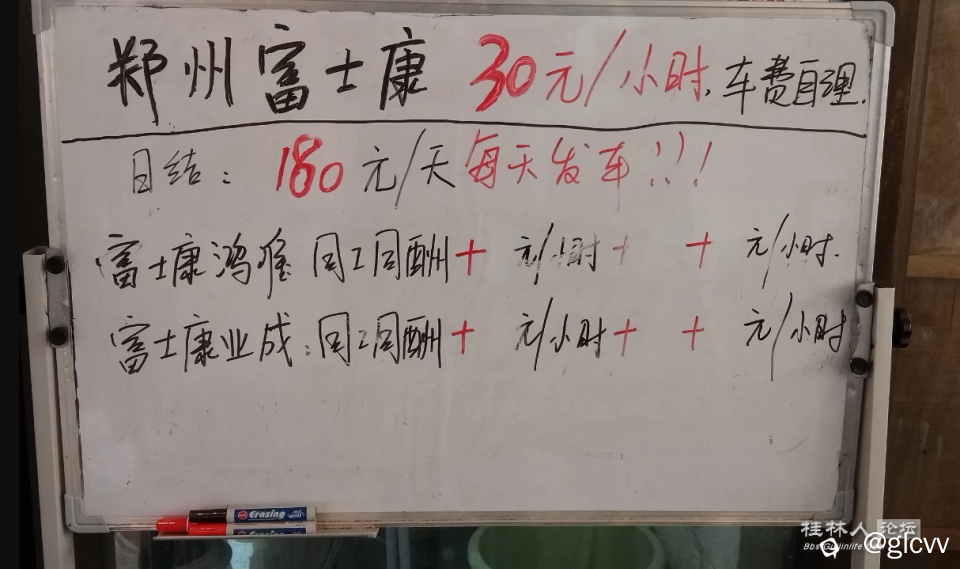 郑州富士康 30元/小时. 车费自理.
日结: 180元/天 每天发车!!!
富士康鸿 同工同酬+ 元/小时+ + 元/小时.
富士康业成: 同工同酬+ 元/小时+ + 元/小时
Erasing
桂林人论坛
@glcvv